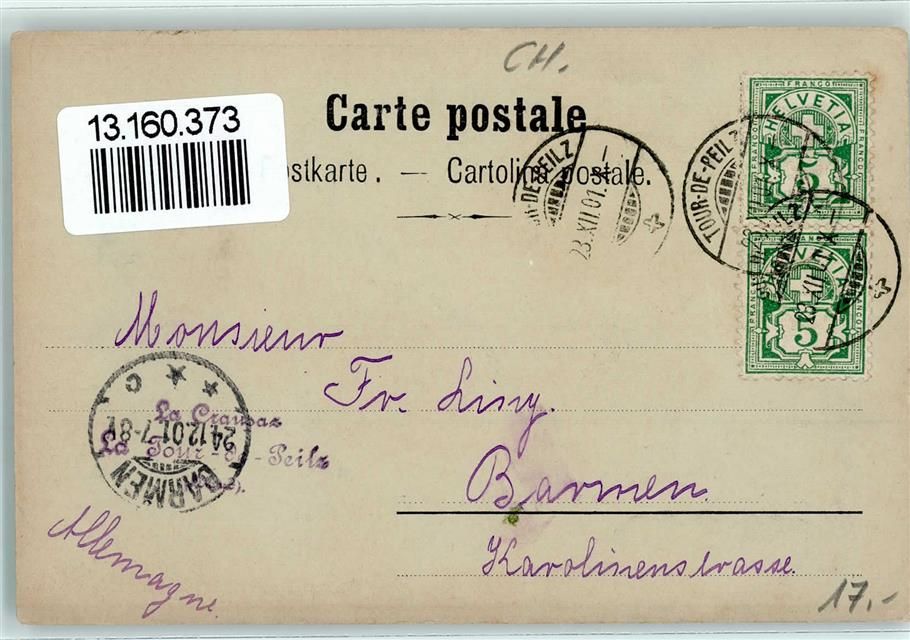 CH.
13.160.373
Carte postale
ostkarte. — Cartolina postale.
R-DE-PEILZ
23.XII.01.
TOUR-DE-PEILZ
FRANCO
HELVETIA
5
FRANCO
HELVETIA
23.XII
5
Monsieur
Fr. Ling.
La Crausaz
La Tour de-Peilz
C
24.12.01.7-8V.
BARMEN
Barmen
Karolinenstrasse.
Allemagne.
17.-